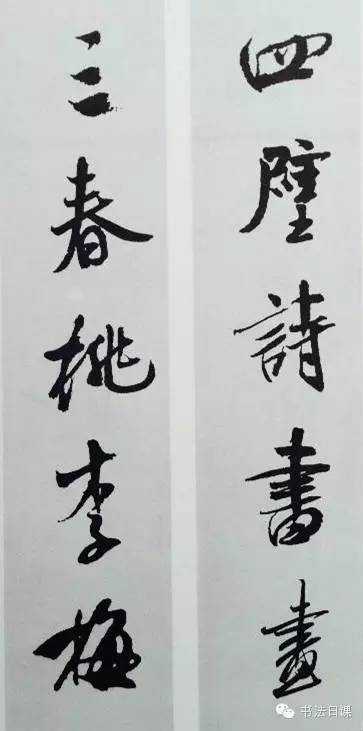 四壁詩書畫
三春桃李梅
书法日课